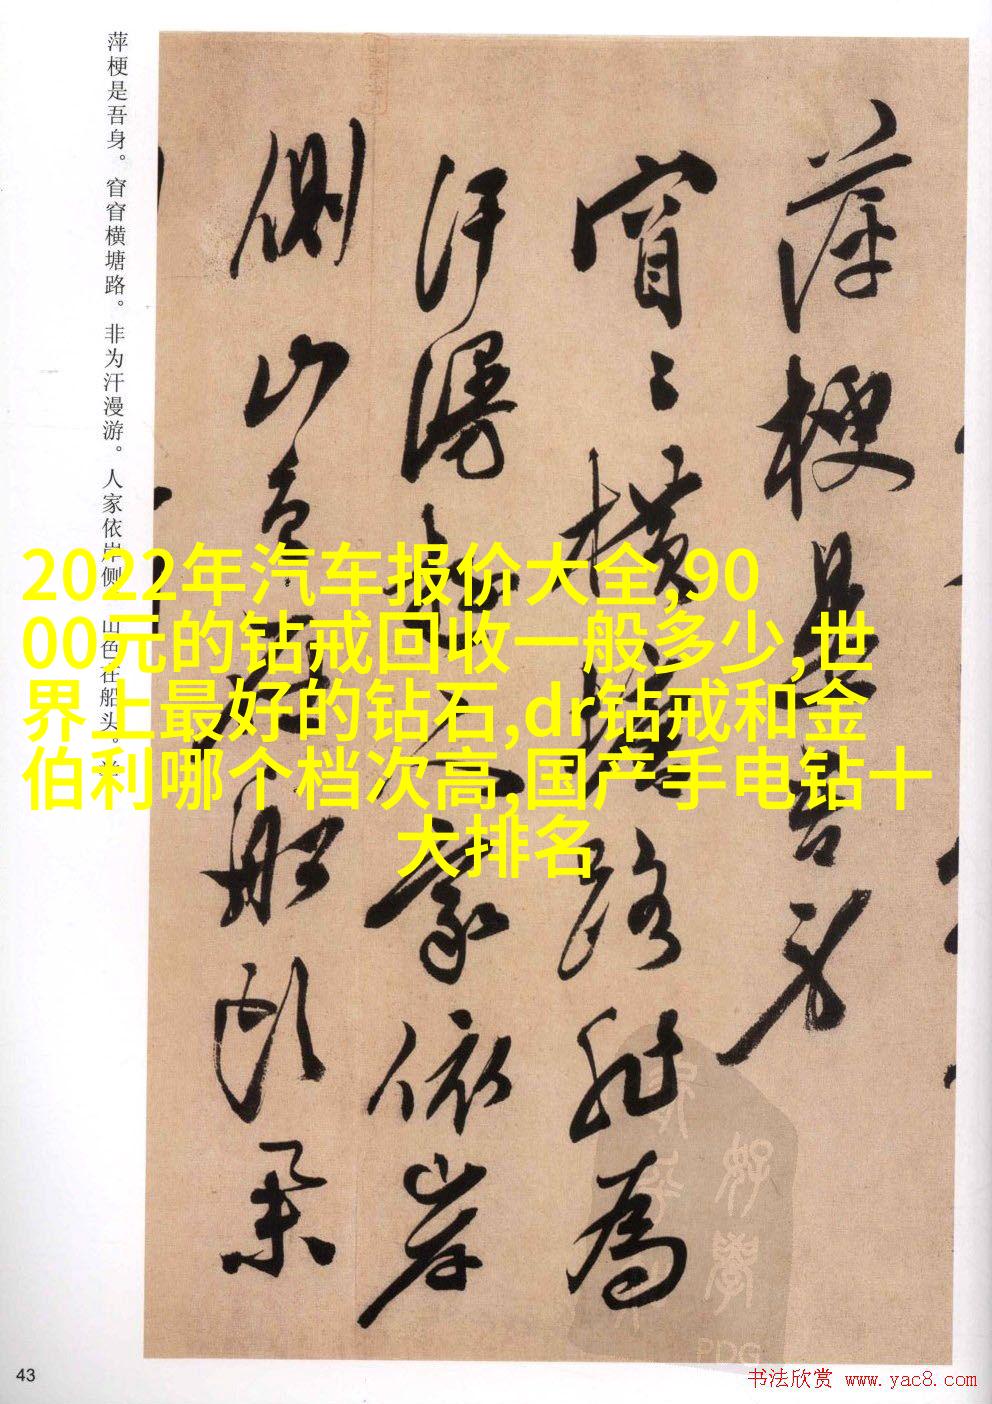 萍梗是吾身。窅窅横塘路。非为汗漫游。人家依岸侧 山色在船头。
萍梗是吾身
窅〻橫塘路非為
汗漫遊人家依岸
側山色在船頭
2022年汽车报价大全,90
00元的钻戒回收一般多少,世
界上最好的钻石,dr钻戒和金
伯利哪个档次高,国产手电钻十
大排名
PDG
43
书法欣赏 www.yac8.com